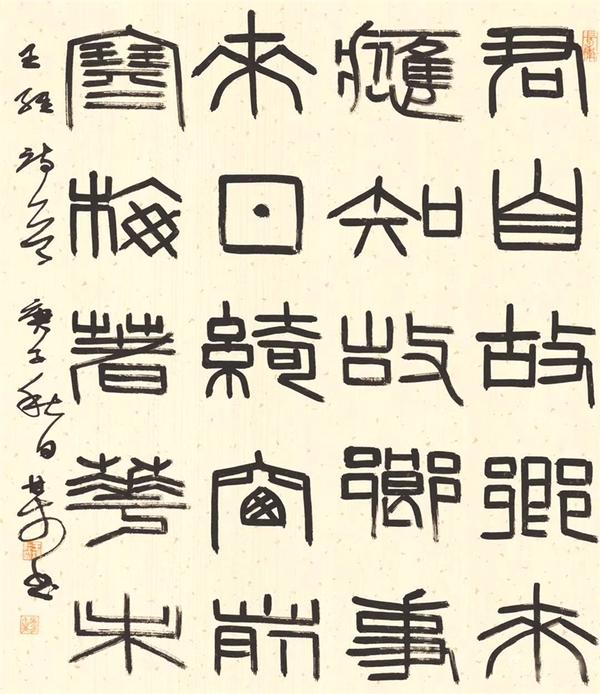 君自故鄉來
應知故鄉事
來日綺窗前
寒梅著華未
王維詩一首 庚子秋日 书